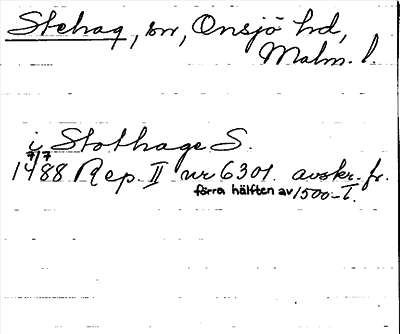 Stehag, sn, Onsjö hd,
Malm. l.
i Stothage S.
7/7
1488 Rep. II nr 6301. avskr. fr.
förra hälften av 1500-t.